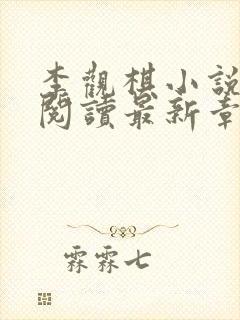 李觀棋小說
閱讀最新章
霖霖七